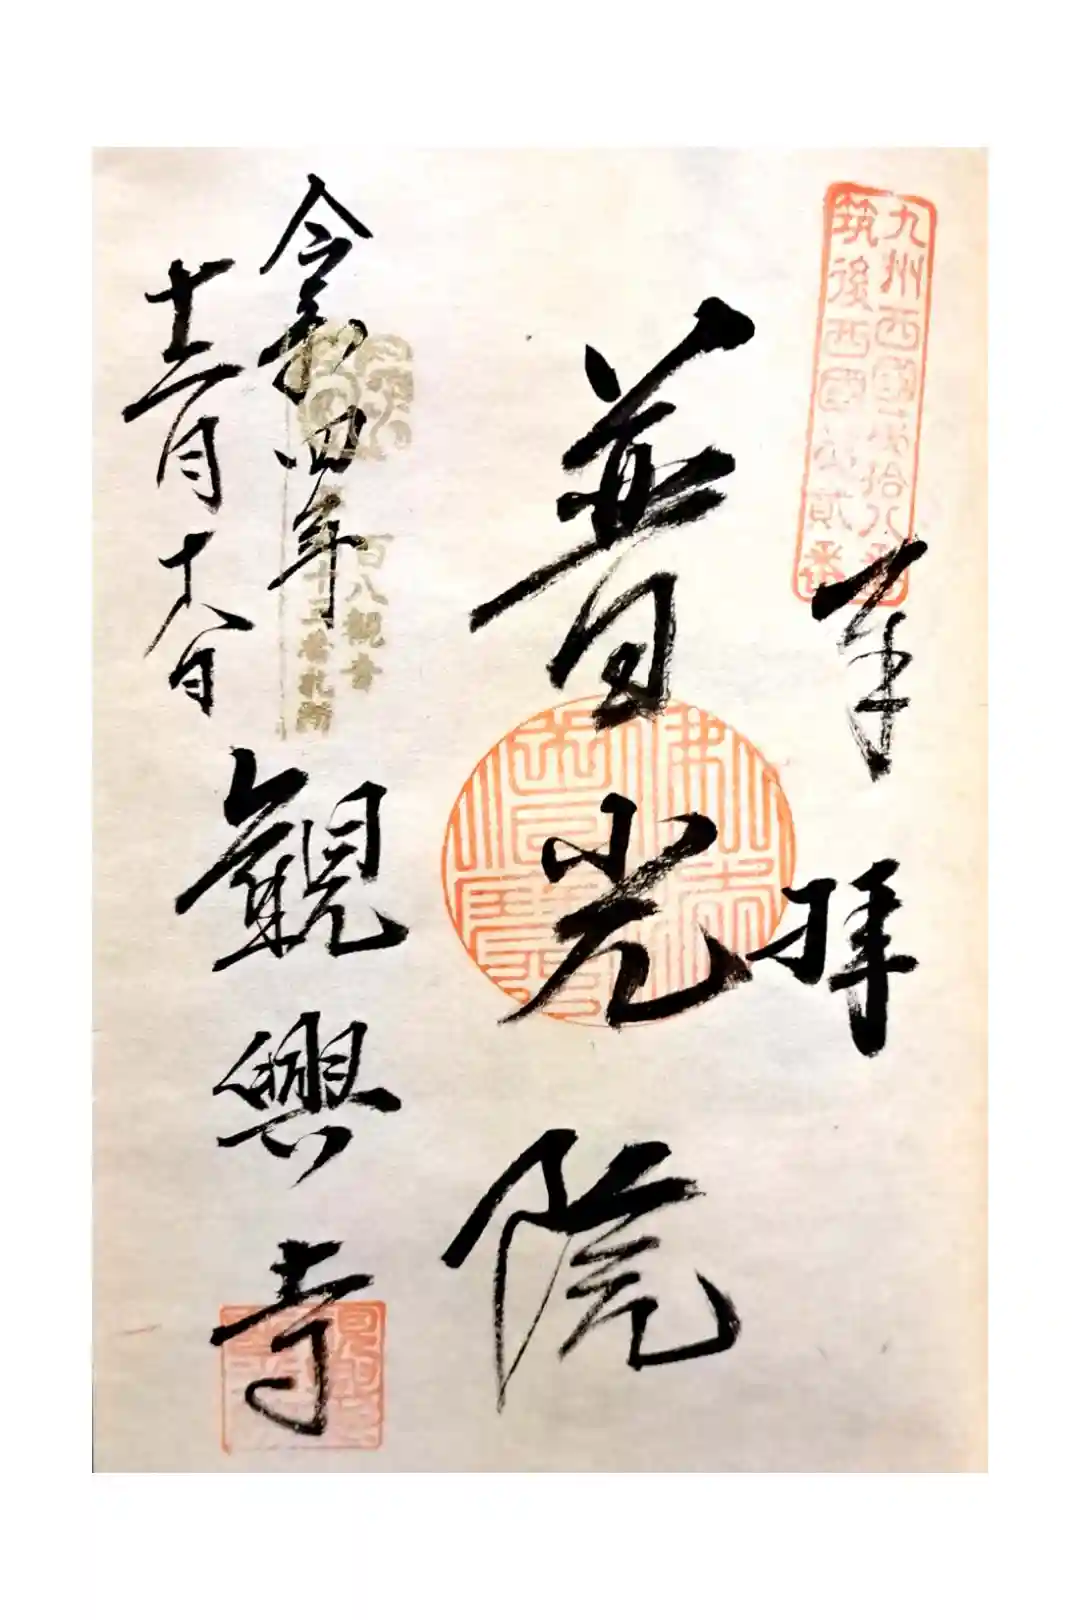 九州西國拾八番
筑後西國貳番
奉拝
普光院
百八観音
十三番札所
令和四年
十二月十八日
観興寺